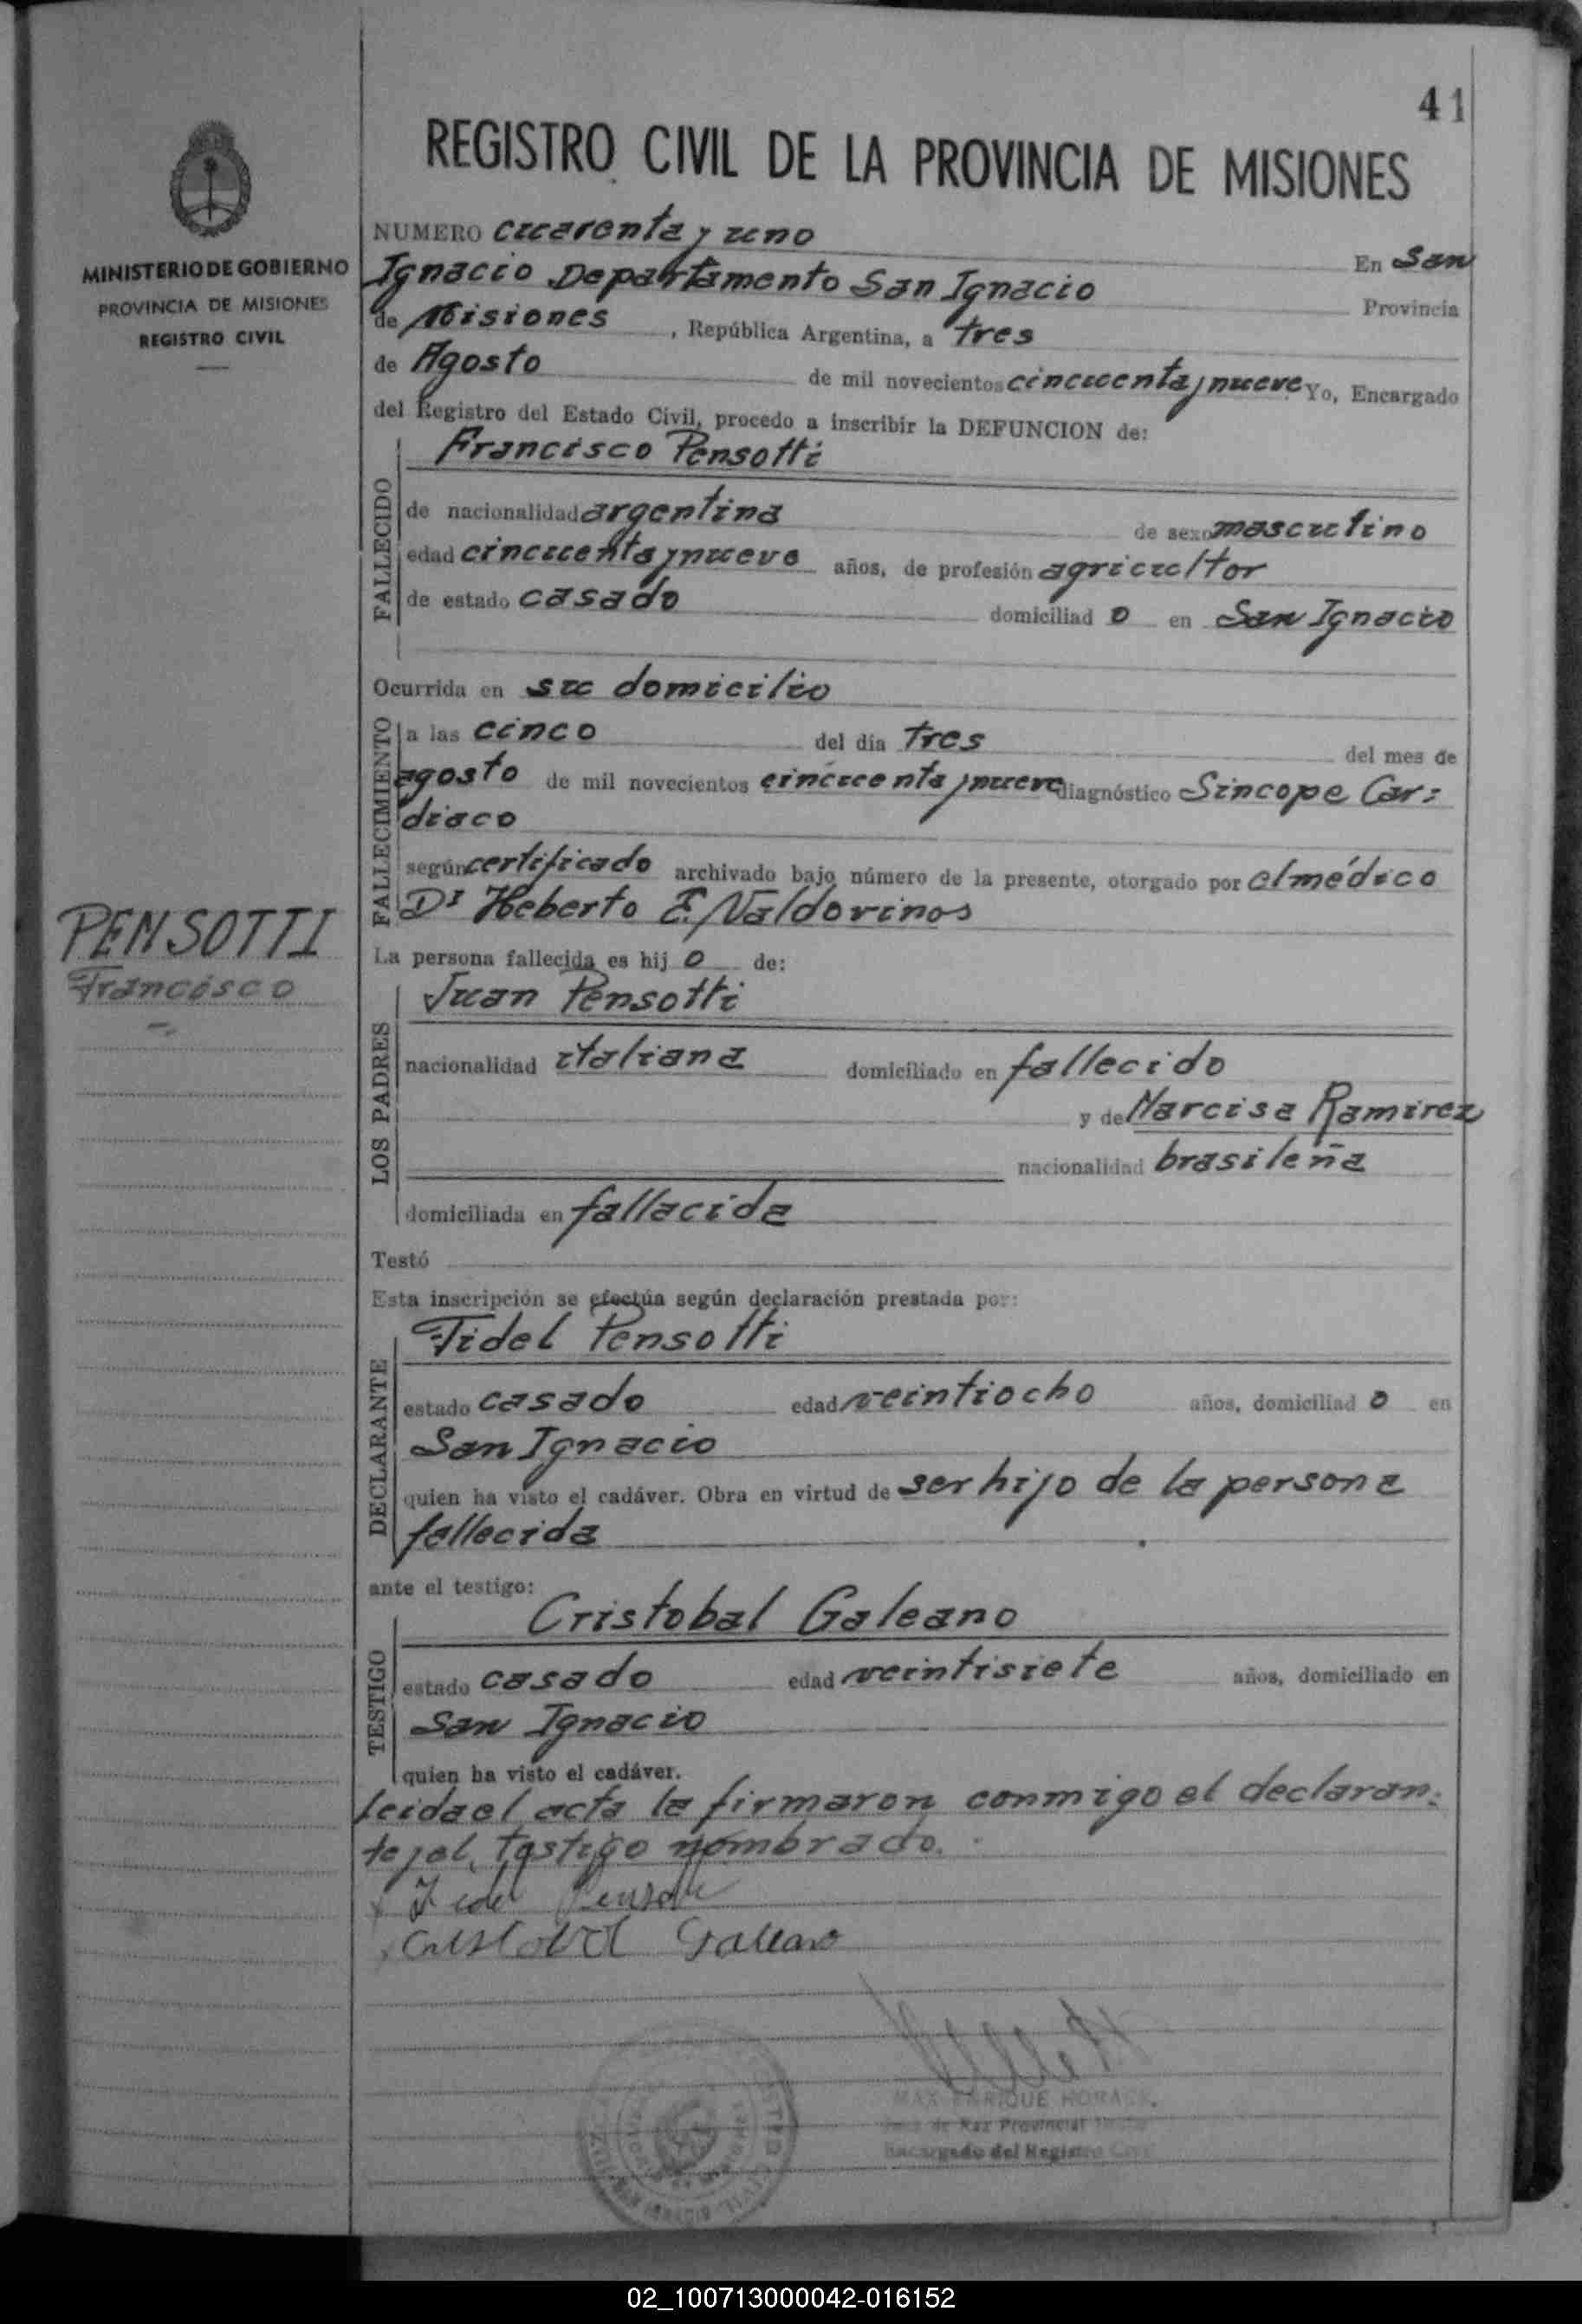 41
REGISTRO CIVIL DE LA PROVINCIA DE MISIONES
MINISTERIO DE GOBIERNO
PROVINCIA DE MISIONES
REGISTRO CIVIL
NUMERO cuarenta y uno
En San
Ignacio Departamento San Ignacio Provincia
de Misiones, República Argentina, a tres
de Agosto de mil novecientos cincuenta y nueve Yo, Encargado
del Registro del Estado Civil, procedo a inscribir la DEFUNCION de:
FALLECIDO
Francisco Pensotti
de nacionalidad argentina de sexo masculino
edad cincuenta y nueve años, de profesión agricultor
de estado casado domiciliad o en San Ignacio
Ocurrida en su domicilio
FALLECIMIENTO
a las cinco del día tres del mes de
agosto de mil novecientos cincuenta y nueve diagnóstico Sincope Car=
diaco
según certificado archivado bajo número de la presente, otorgado por el médico
Dr Heberto E. Valdovinos
PENSOTTI
Francisco
La persona fallecida es hij o de:
LOS PADRES
Juan Pensotti
nacionalidad italiana domiciliado en fallecido
y de Narcisa Ramirez
nacionalidad brasileña
domiciliada en fallacida
Testó
Esta inscripción se efectúa según declaración prestada por:
DECLARANTE
Fidel Pensotti
estado casado edad veintiocho años, domiciliad o en
San Ignacio
quien ha visto el cadáver. Obra en virtud de ser hijo de la persona
fallecida
ante el testigo:
TESTIGO
Cristobal Galeano
estado casado edad veintisiete años, domiciliado en
San Ignacio
quien ha visto el cadáver.
leida el acta la firmaron conmigo el declaran=
te y el testigo nombrado.
x Fidel Pensotti
Cristobal Galeano
MAX ENRIQUE HORACK
de Paz Provincial
Encargado del Registro Civil
02_100713000042-016152